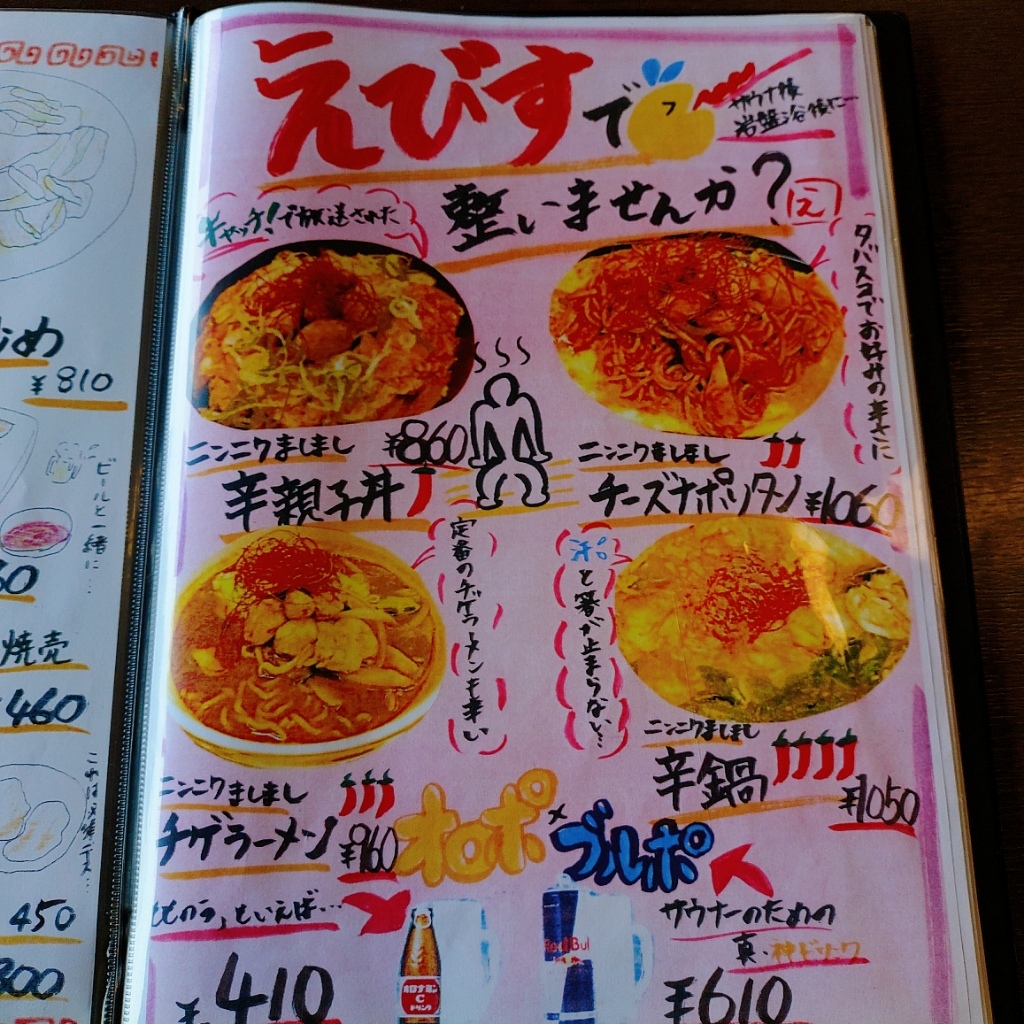 えびすで
サウナ後
岩盤浴後に…
整いませんか?
え
キャッチ!で放送された
タバスコでお好みの辛さに
ニンニクましまし
¥860
辛親子丼
ニンニクましまし
チーズナポリタン ¥1060
定番のチゲラーメンも辛い
ポッと箸が止まらない…
ニンニクましまし
チゲラーメン ¥960
ニンニクましまし
辛鍋
¥1050
オロポ×ブルポ
ととのう、といえば…
¥410
オロナミン
C
ドリンク
Red Bul
サウナーのための
真・神ドリンク
¥610
じめ
¥810
ビールと一緒に…
60
焼売
460
450
300